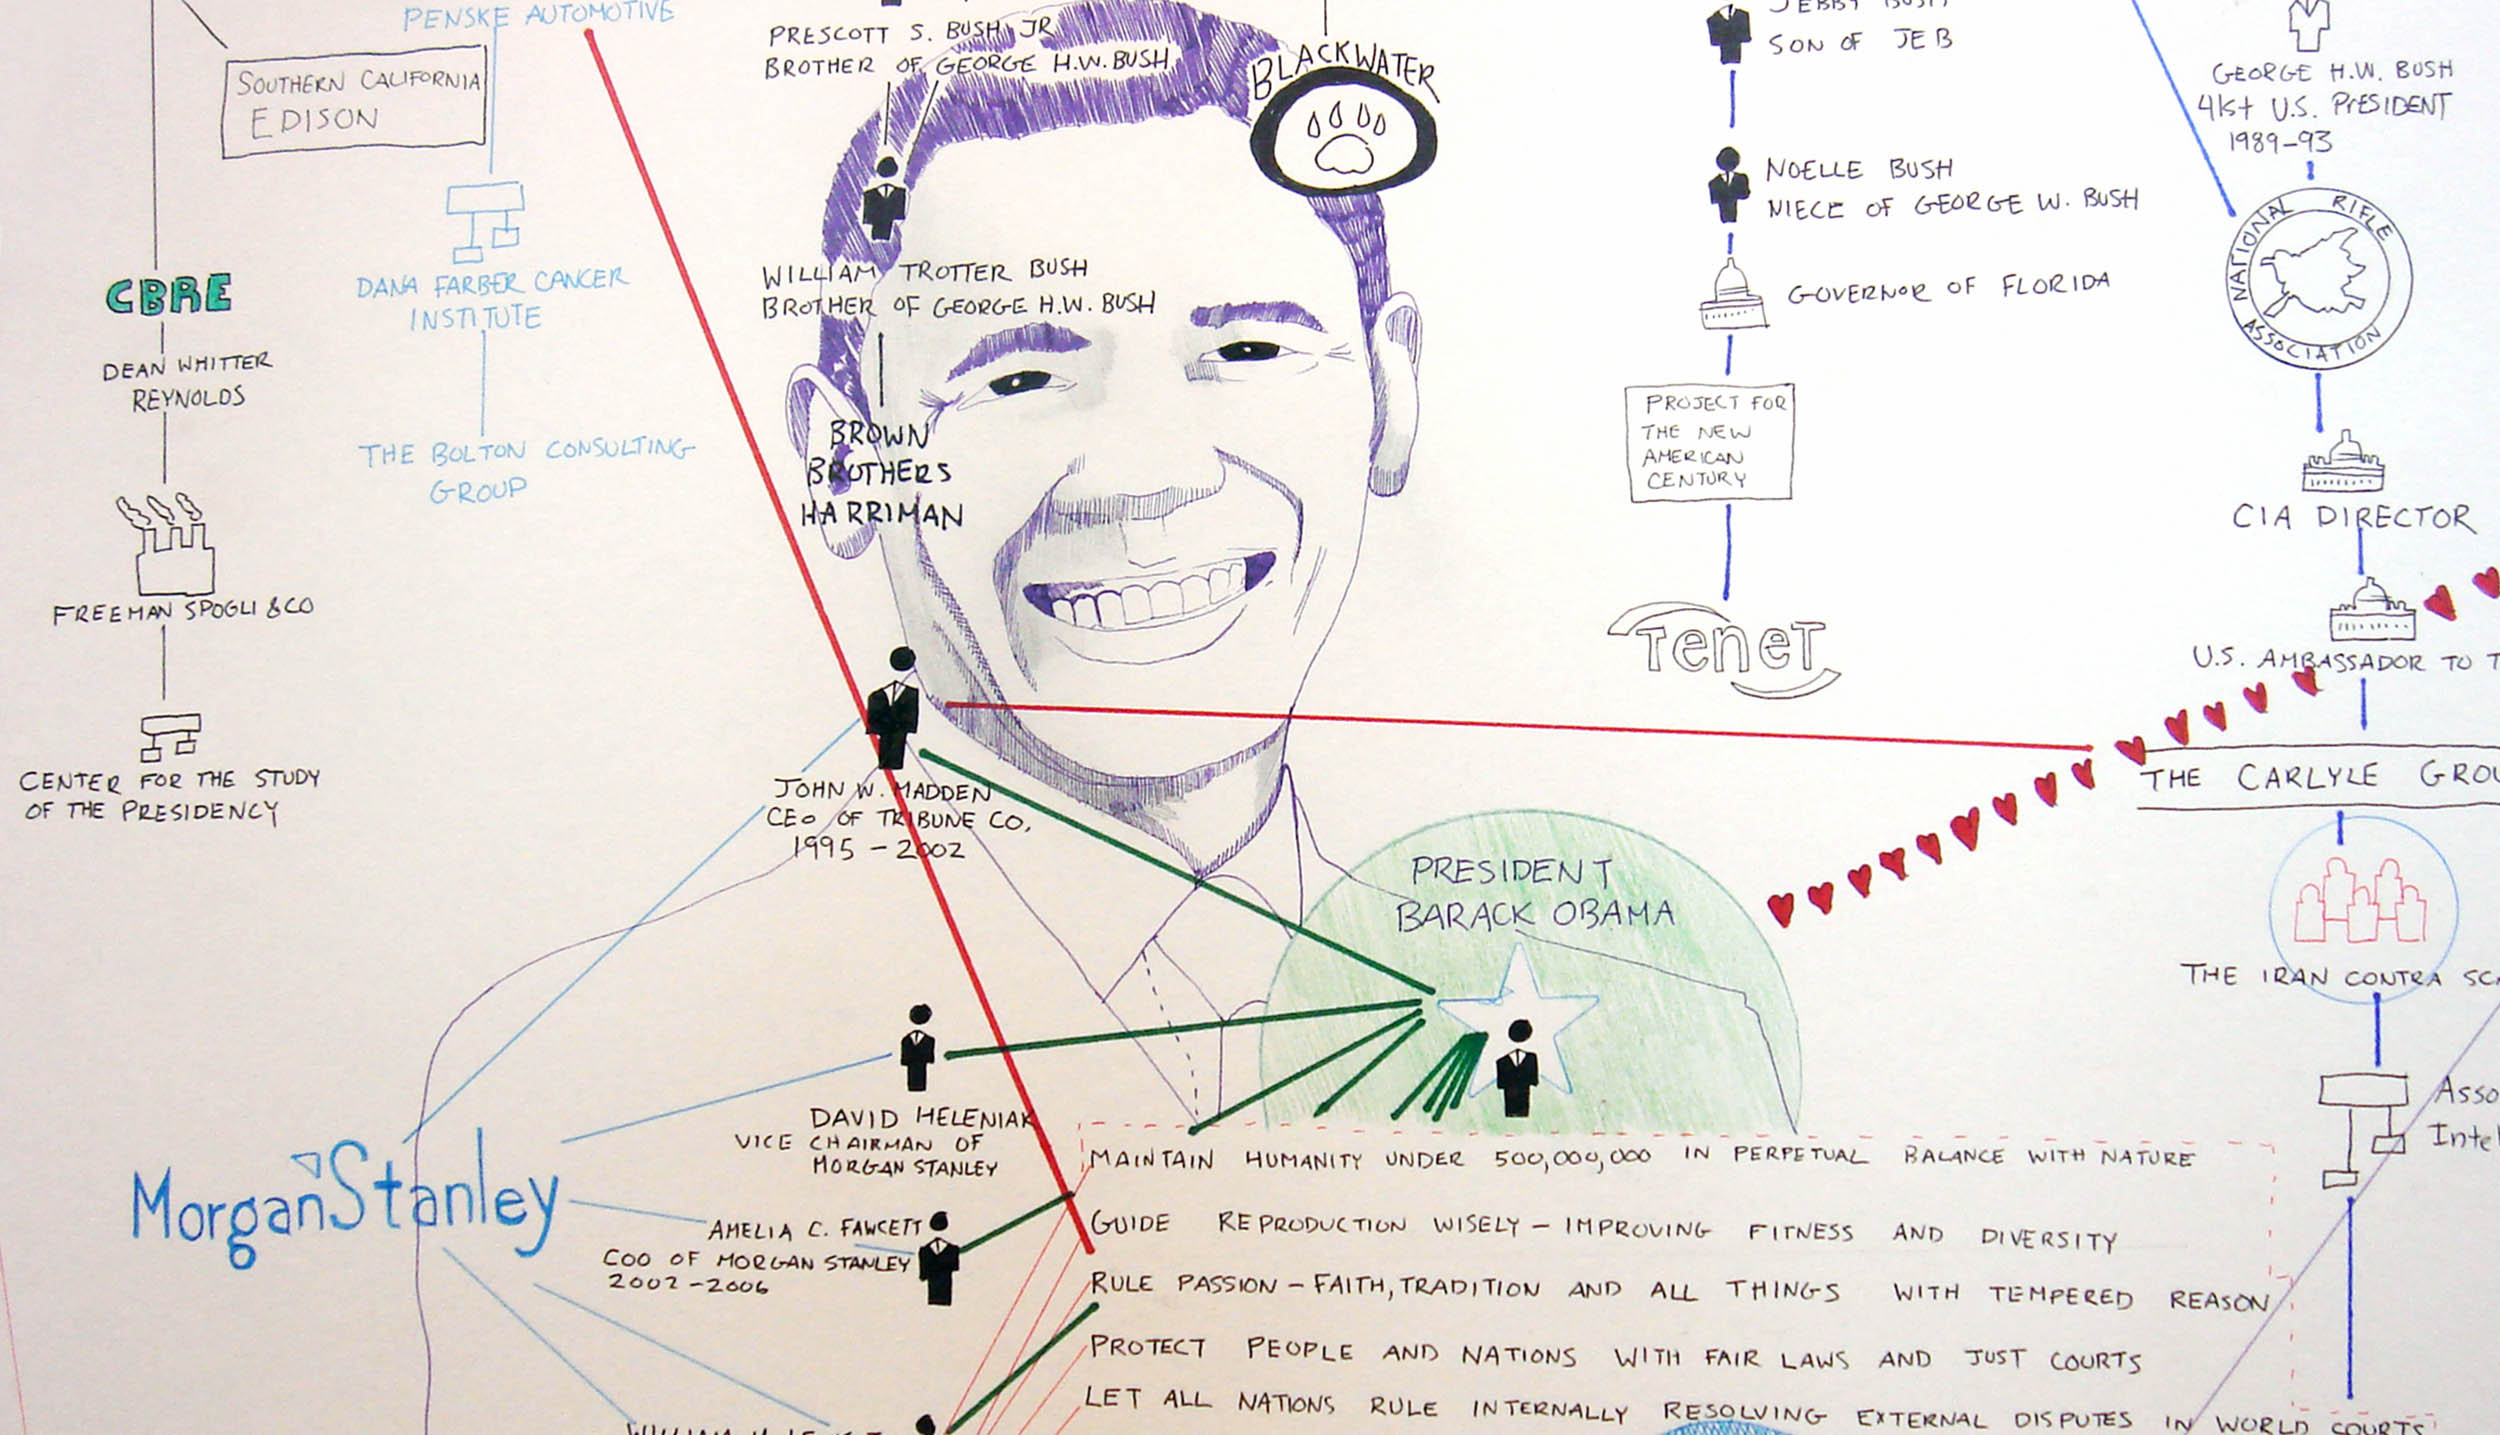 PENSKE AUTOMOTIVE
SOUTHERN CALIFORNIA
EDISON
CBRE
DEAN WHITTER
REYNOLDS
FREEMAN SPOGLI & CO
CENTER FOR THE STUDY
OF THE PRESIDENCY
DANA FARBER CANCER
INSTITUTE
THE BOLTON CONSULTING
GROUP
PRESCOTT S. BUSH JR
BROTHER OF GEORGE H.W. BUSH
BLACKWATER
WILLIAM TROTTER BUSH
BROTHER OF GEORGE H.W. BUSH
BROWN
BROTHERS
HARRIMAN
JOHN W. MADDEN
CEO OF TRIBUNE CO,
1995 - 2002
DAVID HELENIAK
VICE CHAIRMAN OF
MORGAN STANLEY
MorganStanley
AMELIA C. FAWCETT
COO OF MORGAN STANLEY
2002 - 2006
JEBBY BUSH
SON OF JEB
NOELLE BUSH
NIECE OF GEORGE W. BUSH
GOVERNOR OF FLORIDA
PROJECT FOR
THE NEW
AMERICAN
CENTURY
TeneT
GEORGE H.W. BUSH
41st U.S. PrESIDENT
1989-93
NATIONAL RIFLE
ASSOCIATION
CIA DIRECTOR
U.S. AMBASSADOR TO T
THE CARLYLE GROU
THE IRAN CONTRA SC
Asso
Inte
PRESIDENT
BARACK OBAMA
MAINTAIN HUMANITY UNDER 500,000,000 IN PERPETUAL BALANCE WITH NATURE
GUIDE REPRODUCTION WISELY - IMPROVING FITNESS AND DIVERSITY
RULE PASSION - FAITH, TRADITION AND ALL THINGS WITH TEMPERED REASON
PROTECT PEOPLE AND NATIONS WITH FAIR LAWS AND JUST COURTS
LET ALL NATIONS RULE INTERNALLY RESOLVING EXTERNAL DISPUTES IN WORLD COURTS